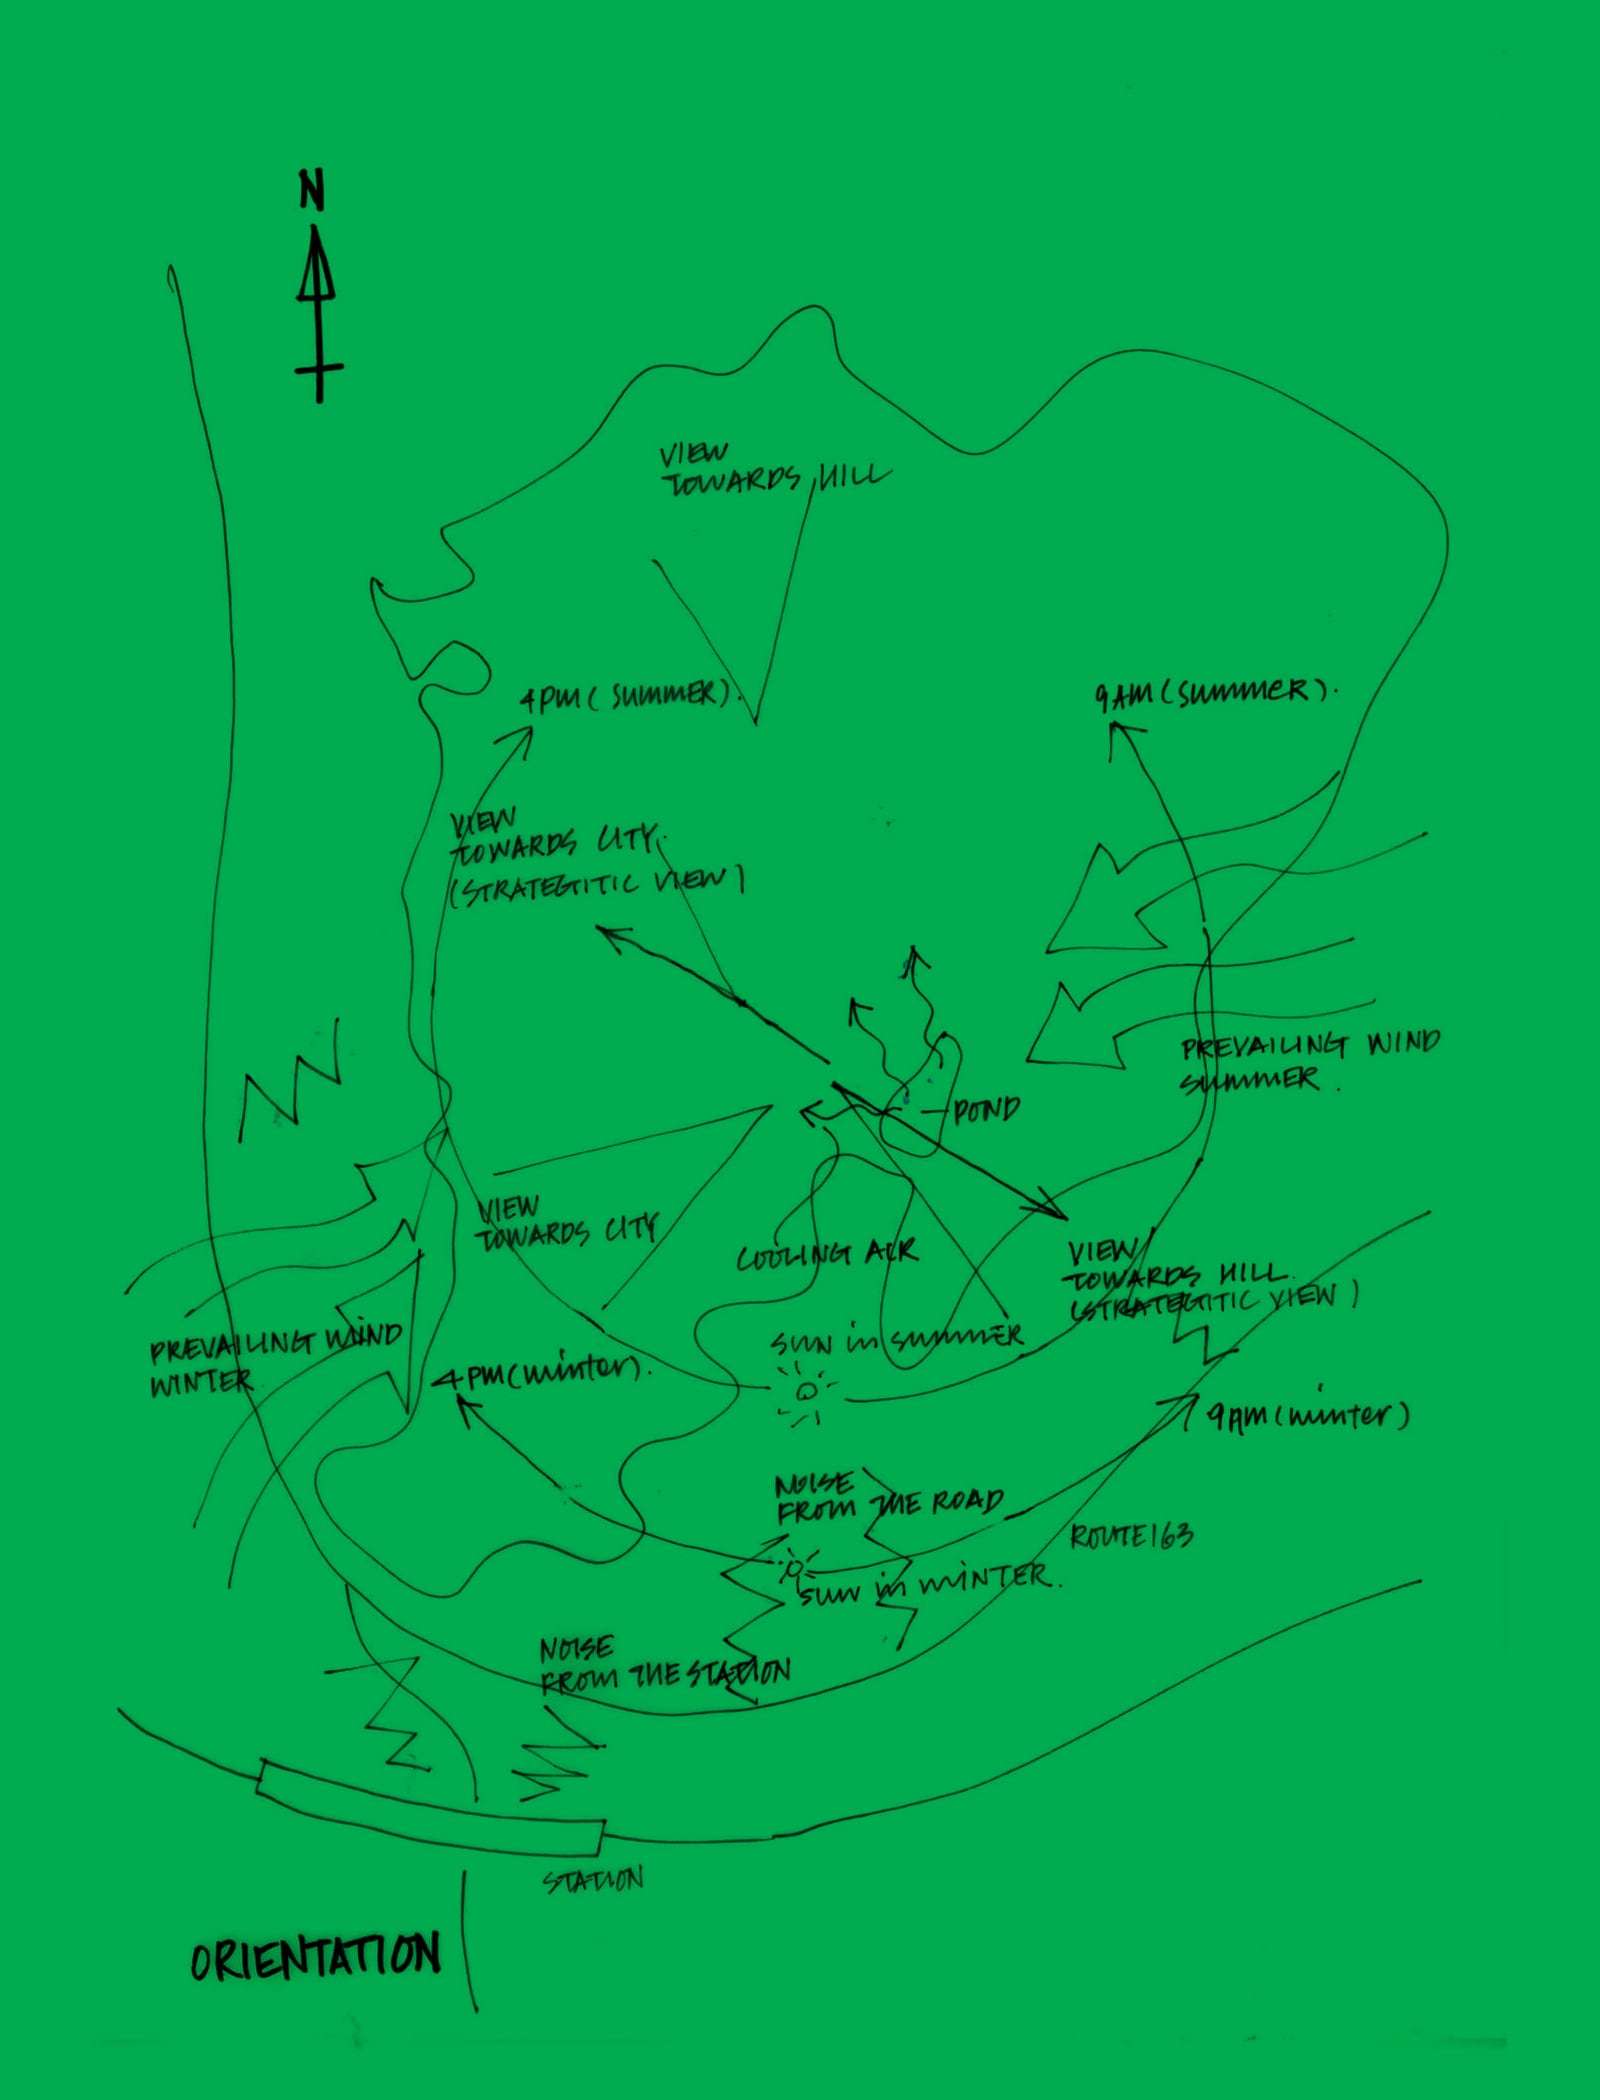 N
VIEW
TOWARDS HILL
4PM (SUMMER).
9AM (SUMMER).
VIEW
TOWARDS CITY.
(STRATEGTITIC VIEW)
PREVAILING WIND
SUMMER.
POND
VIEW
TOWARDS CITY
COOLING AIR
VIEW
TOWARDS HILL.
(STRATEGTITIC VIEW)
PREVAILING WIND
WINTER
SUN in SUMMER
4PM (winter).
9AM (winter)
NOISE
FROM THE ROAD
ROUTE 163
SUN in WINTER.
NOISE
FROM THE STATION
STATION
ORIENTATION